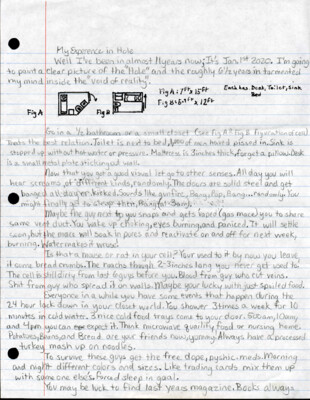 My Experience in Hole
Well I've been in almost 11 years now; It's Jan. 1st 2020. I'm going
to paint a clear picture of the "Hole" and the roughly 6½ years in tormented
my mind inside the "void of reality".
Fig A: 7ft x 15ft
Fig B: 8.7ft x 12ft
Each has Desk, Toilet, Sink
Bed
Fig A
Fig B
Go in a ½ bathroom or a small closet. (see fig A & fig B.) Figure
looks the best relation. Toilet is next to bed, men have pissed in. Sink is
stopped up without hot water or pressure. Mattress is 3 inches thick, forget a pillow. Desk
is a small metal plate sticking out wall.
Now that you got a good visual let go to other senses. All day you will
hear screams, of different kinds, randomly. The doors are solid steel and get
banged all day or kicked. Sounds like gunfire. Bang, Pop, Bang... randomly. You
might finally get to sleep then, Bang! or Bang!
Maybe the guy next to you snaps and gets vapor (gas maced) you to share
same vent duct. You wake up choking, eyes burning, and paniced. It will settle
soon, but the mace will soak in pores and reactivate on and off for next week,
burning. Water makes it worse.
Is that a mouse or rat in your cell? Your used to it by now you leave
it some bread crumbs. The roachs though 2-3 inches long you never get used to.
The cell is filthy from last 6 guys before you. Blood from guy who cut veins.
Shit from guy who spread it on walls. Maybe your lucky with just spoiled food.
Everyonce in a while you have some events that happen during the
24 hour lock down in your closet world. You shower 3 times a week for 10
minutes in cold water. 3 nice cold food trays come to your door. 5:00am, 10am,
and 4pm you can expect it. Think microwave quality food or nursing home.
Potatoes, Beans, and Bread are your friends now, yummy. Always have a processed
turkey mash up on noodles.
To survive these guys get the free dope, pychic meds. Morning
and night different colors and sizes. Like trading cards mix them up
with some one else's. Forced sleep in goal.
You may be luck to find last years magazine. Books always